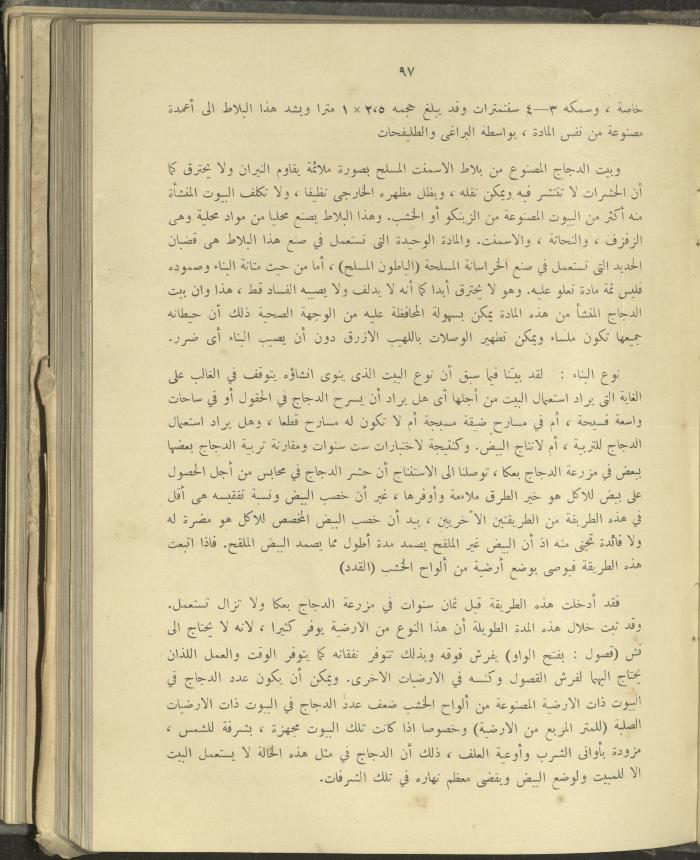 ٩٧
خاصة ، وسمكه ٣—٤ سفتمترات وقد يبلغ حجمه ٢،٥ × ١ مترا ويشد هذا البلاط الى أعمدة
مصنوعة من نفس المادة ، بواسطة البراغى والطليفحات
وبيت الدجاج المصنوع من بلاط الاسمنت المسلح بصورة ملائمة يقاوم النيران ولا يحترق كما
أن الحشرات لا تنتشر فيه ويمكن نقله ، ويظل مظهره الخارجى نظيفا ، ولا تكلف البيوت المنشأة
منه أكثر من البيوت المصنوعة من الزينكو أو الخشب. وهذا البلاط يصنع محليا من مواد محلية وهى
الزفزف ، والنحاتة ، والاسمنت. والمادة الوحيدة التى تستعمل في صنع هذا البلاط هى قضبان
الحديد التى تستعمل في صنع الخراسانة المسلحة (الباطون المسلح) ، أما من حيث متانة البناء وصموده
فليس ثمة مادة تعلو عليه. وهو لا يحترق أبدا كما أنه لا يدلف ولا يصيبه الفساد قط ، هذا وان بيت
الدجاج المنشأ من هذه المادة يمكن بسهولة المحافظة عليه من الوجهة الصحية ذلك أن حيطانه
جميعها تكون ملساء ويمكن تطهير الوصلات باللهيب الازرق دون أن يصيب البناء أى ضرر.
نوع البناء : لقد بيّنا فيما سبق أن نوع البيت الذى ينوى انشاؤه يتوقف في الغالب على
الغاية التى يراد استعمال البيت من أجلها أى هل يراد أن يسرح الدجاج في الحقول أو في ساحات
واسعة فسيحة ، أم في مسارح ضيقة مسيجة أم لا تكون له مسارح قطعا ، وهل يراد استعمال
الدجاج للتربية ، أم لانتاج البيض. وكنتيجة لاختبارات ست سنوات ومقارنة تربية الدجاج بعضها
ببعض في مزرعة الدجاج بعكا ، توصلنا الى الاستنتاج أن حشر الدجاج في محابس من أجل الحصول
على بيض للاكل هو خير الطرق ملاءمة وأوفرها ، غير أن خصب البيض ونسبة تفقيسه هى أقل
في هذه الطريقة من الطريقتين الآخريين ، بيد أن خصب البيض المخصص للاكل هو مضرة له
ولا فائدة تجنى منه اذ أن البيض غير الملقح يصمد مدة أطول مما يصمد البيض الملقح. فاذا اتبعت
هذه الطريقة فيوصى بوضع أرضية من ألواح الخشب (القدد)
فقد أدخلت هذه الطريقة قبل ثمان سنوات في مزرعة الدجاج بعكا ولا تزال تستعمل.
وقد ثبت خلال هذه المدة الطويلة أن هذا النوع من الارضية يوفر كثيرا ، لانه لا يحتاج الى
قش (قصول : بفتح الواو) يفرش فوقه وبذلك تتوفر نفقاته كما يتوفر الوقت والعمل اللذان
يحتاج اليهما لفرش القصول وكنسه في الارضيات الاخرى. ويمكن أن يكون عدد الدجاج في
البيوت ذات الارضية المصنوعة من ألواح الخشب ضعف عدد الدجاج في البيوت ذات الارضيات
الصلبة (للمتر المربع من الارضية) وخصوصا اذا كانت تلك البيوت مجهزة ، بشرفة للشمس ،
مزودة بأوانى الشرب وأوعية العلف ، ذلك أن الدجاج في مثل هذه الحالة لا يستعمل البيت
الا للمبيت ولوضع البيض ويقضى معظم نهاره في تلك الشرفات.